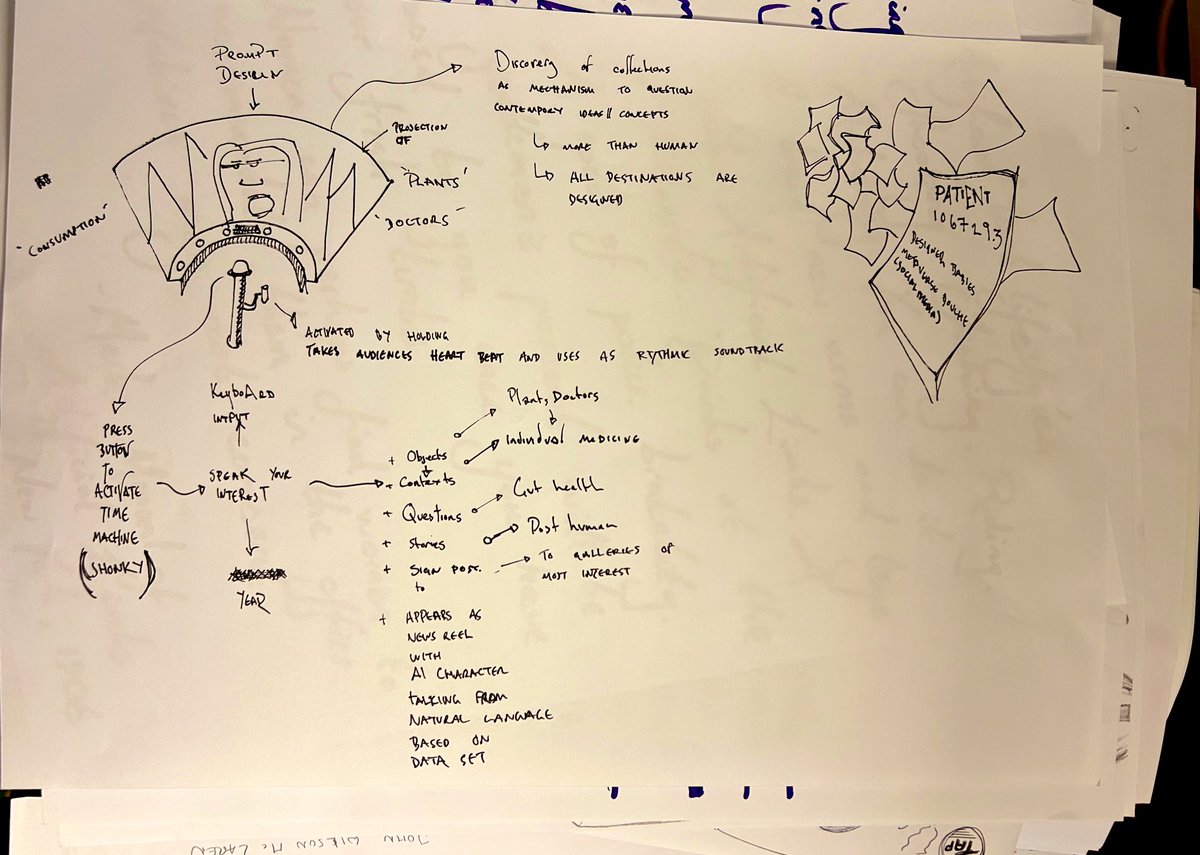 PROMPT
DESIGN
Discovery of collections
AS MECHANISM TO QUESTION
CONTEMPORY IDEAS || CONCEPTS
↳ MORE THAN HUMAN
↳ ALL DESTINATIONS ARE
DESIGNED
PROJECTION
OF
"PLANTS"
"DOCTORS"
"CONSUMPTION"
PATIENT
1067293
DESIGNER BABIES
METAVERSE
(SOCIAL MEDIA)
ACTIVATED BY HOLDING
TAKES AUDIENCES HEART BEAT AND USES AS RYTHMIC SOUNDTRACK
KeyboARD
INPUT
PRESS
BUTTON
TO
ACTIVATE
TIME
MACHINE
(SHONKY)
SPEAK YOUR
INTEREST
YEAR
+ Objects
+ Contexts
+ Questions
+ Stories
+ SIGN POST.
to
Plants, Doctors
Individual MEDICINE
Gut health
Post human
TO GALLERIES OF
MOST INTEREST
+ APPEARS AS
NEWS REEL
WITH
AI CHARACTER
tALKING FROM
NATURAL LANGUAGE
BASED ON
DATA SET
JOHN WILSON McLAREN
TAP